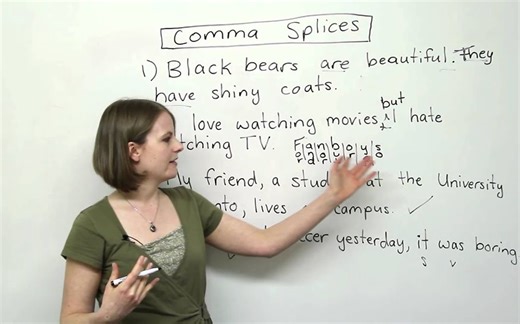 Comma Splices
1) Black bears are beautiful. They
have shiny coats.
but
love watching movies, I hate
tching TV. F|a|n|b|o|y|s
or d r t o
ly friend, a stud at the University
nto, lives campus. ✓
ccer yesterday, it was boring
s v